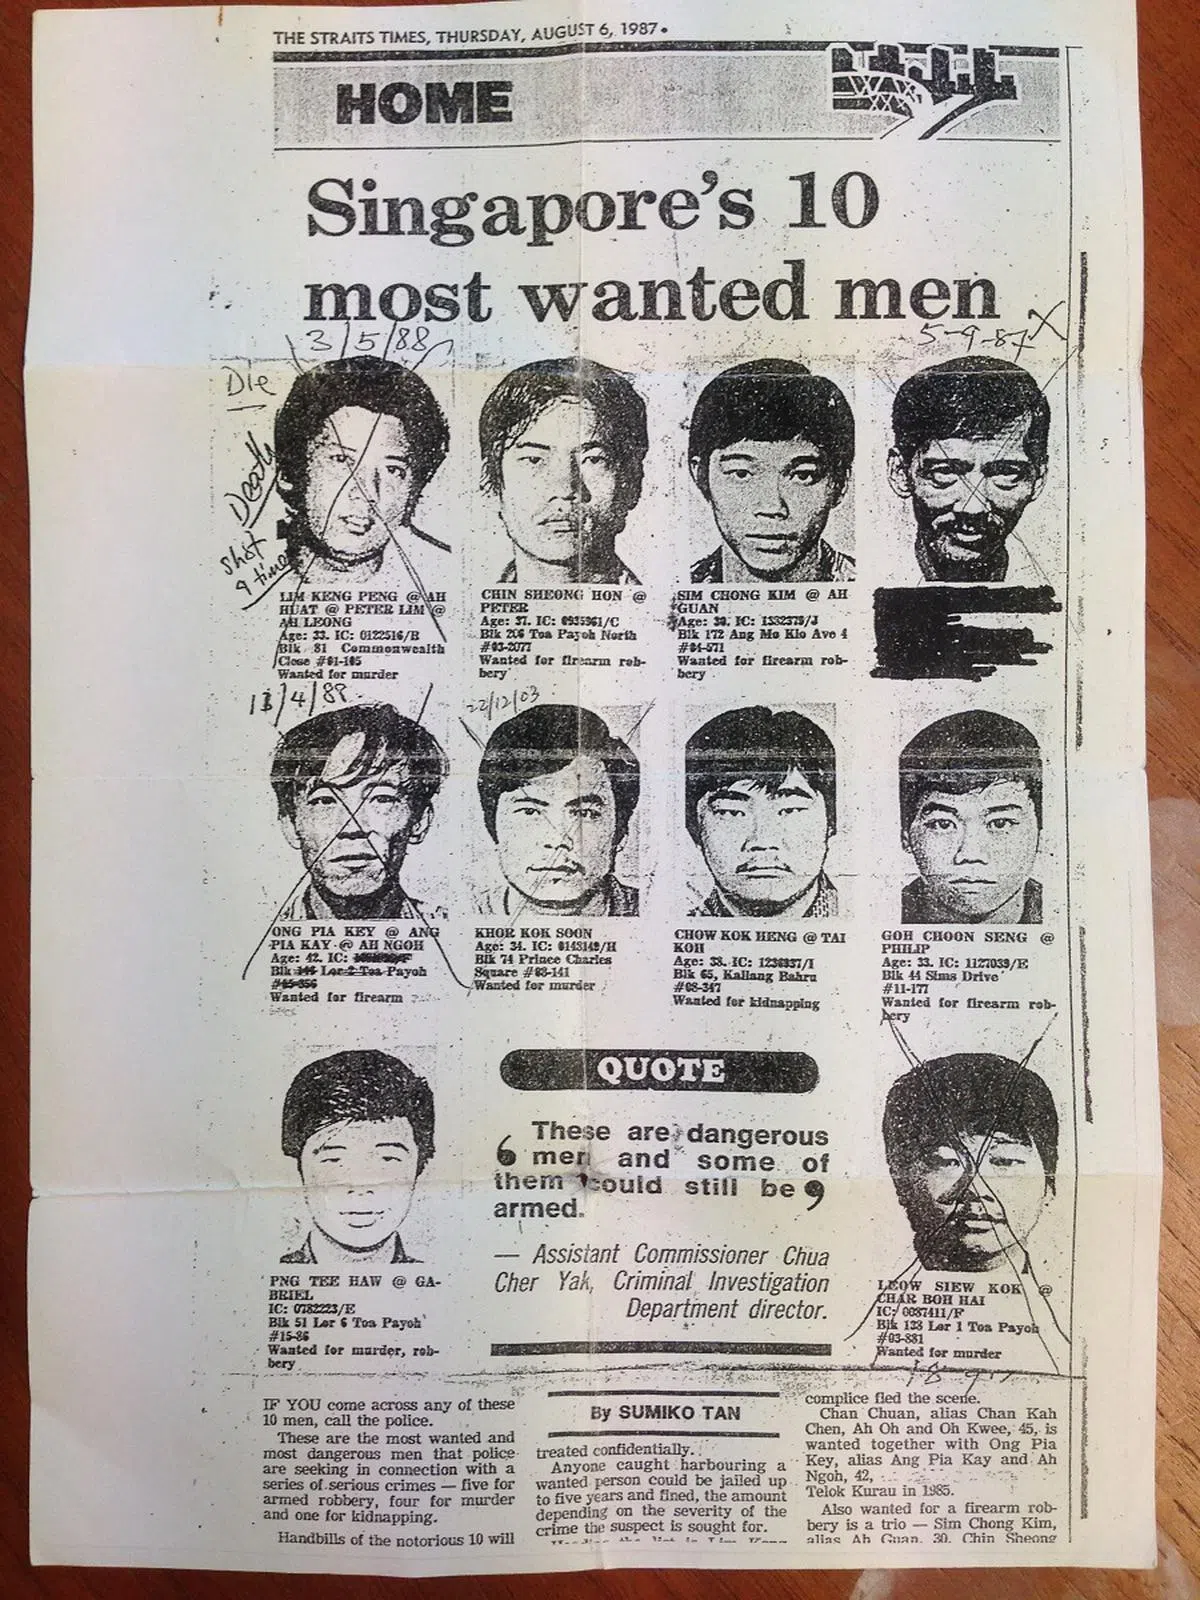 THE STRAITS TIMES, THURSDAY, AUGUST 6, 1987.
HOME
Singapore's 10
most wanted men
3/5/88
5-9-87 X
Die
Death
Shot
9 time
LIM KENG PENG @ AH
HUAT @ PETER LIM @
AH LEONG
Age: 33. IC: 0122516/B
Blk 81 Commonwealth
Close #01-105
Wanted for murder
CHIN SHEONG HON @
PETER
Age: 37. IC:
Blk 206 Toa Payoh North
#03-2077
Wanted for firearm rob-
bery
SIM CHONG KIM @ AH
GUAN
Age: 30. IC: 1332378/J
Blk 172 Ang Mo Kio Ave 4
#04-571
Wanted for firearm rob-
bery
4/89
22/12/03
ONG PIA KEY @ ANG
PIA KAY @ AH NGOH
Age: 42. IC:
Blk Lor 2 Toa Payoh
Wanted for firearm
KHOR KOK SOON
Age: 34. IC: 0143149/H
Blk 74 Prince Charles
Square #08-141
Wanted for murder
CHOW KOK HENG @ TAI
KOH
Age: 38. IC: 1236937/I
Blk 65, Kallang Bahru
#08-347
Wanted for kidnapping
GOH CHOON SENG @
PHILIP
Age: 33. IC: 1127039/E
Blk 44 Sims Drive
#11-177
Wanted for firearm rob-
bery
PNG TEE HAW @ GA-
BRIEL
IC: 0782223/E
Blk 51 Lor 6 Toa Payoh
#15-86
Wanted for murder, rob-
bery
QUOTE
‘ These are dangerous
men and some of
them could still be ’
armed.
— Assistant Commissioner Chua
Cher Yak, Criminal Investigation
Department director.
LEOW SIEW KOK @
CHAR BOH HAI
IC: 0087411/F
Blk 138 Lor 1 Toa Payoh
#03-881
Wanted for murder
IF YOU come across any of these
10 men, call the police.
These are the most wanted and
most dangerous men that police
are seeking in connection with a
series of serious crimes — five for
armed robbery, four for murder
and one for kidnapping.
Handbills of the notorious 10 will
By SUMIKO TAN
treated confidentially.
Anyone caught harbouring a
wanted person could be jailed up
to five years and fined, the amount
depending on the severity of the
crime the suspect is sought for.
Heading the list is Lim Keng
complice fled the scene.
Chan Chuan, alias Chan Kah
Chen, Ah Oh and Oh Kwee, 45, is
wanted together with Ong Pia
Key, alias Ang Pia Kay and Ah
Ngoh, 42,
Telok Kurau in 1985.
Also wanted for a firearm rob-
bery is a trio — Sim Chong Kim,
alias Ah Guan, 30, Chin Sheong